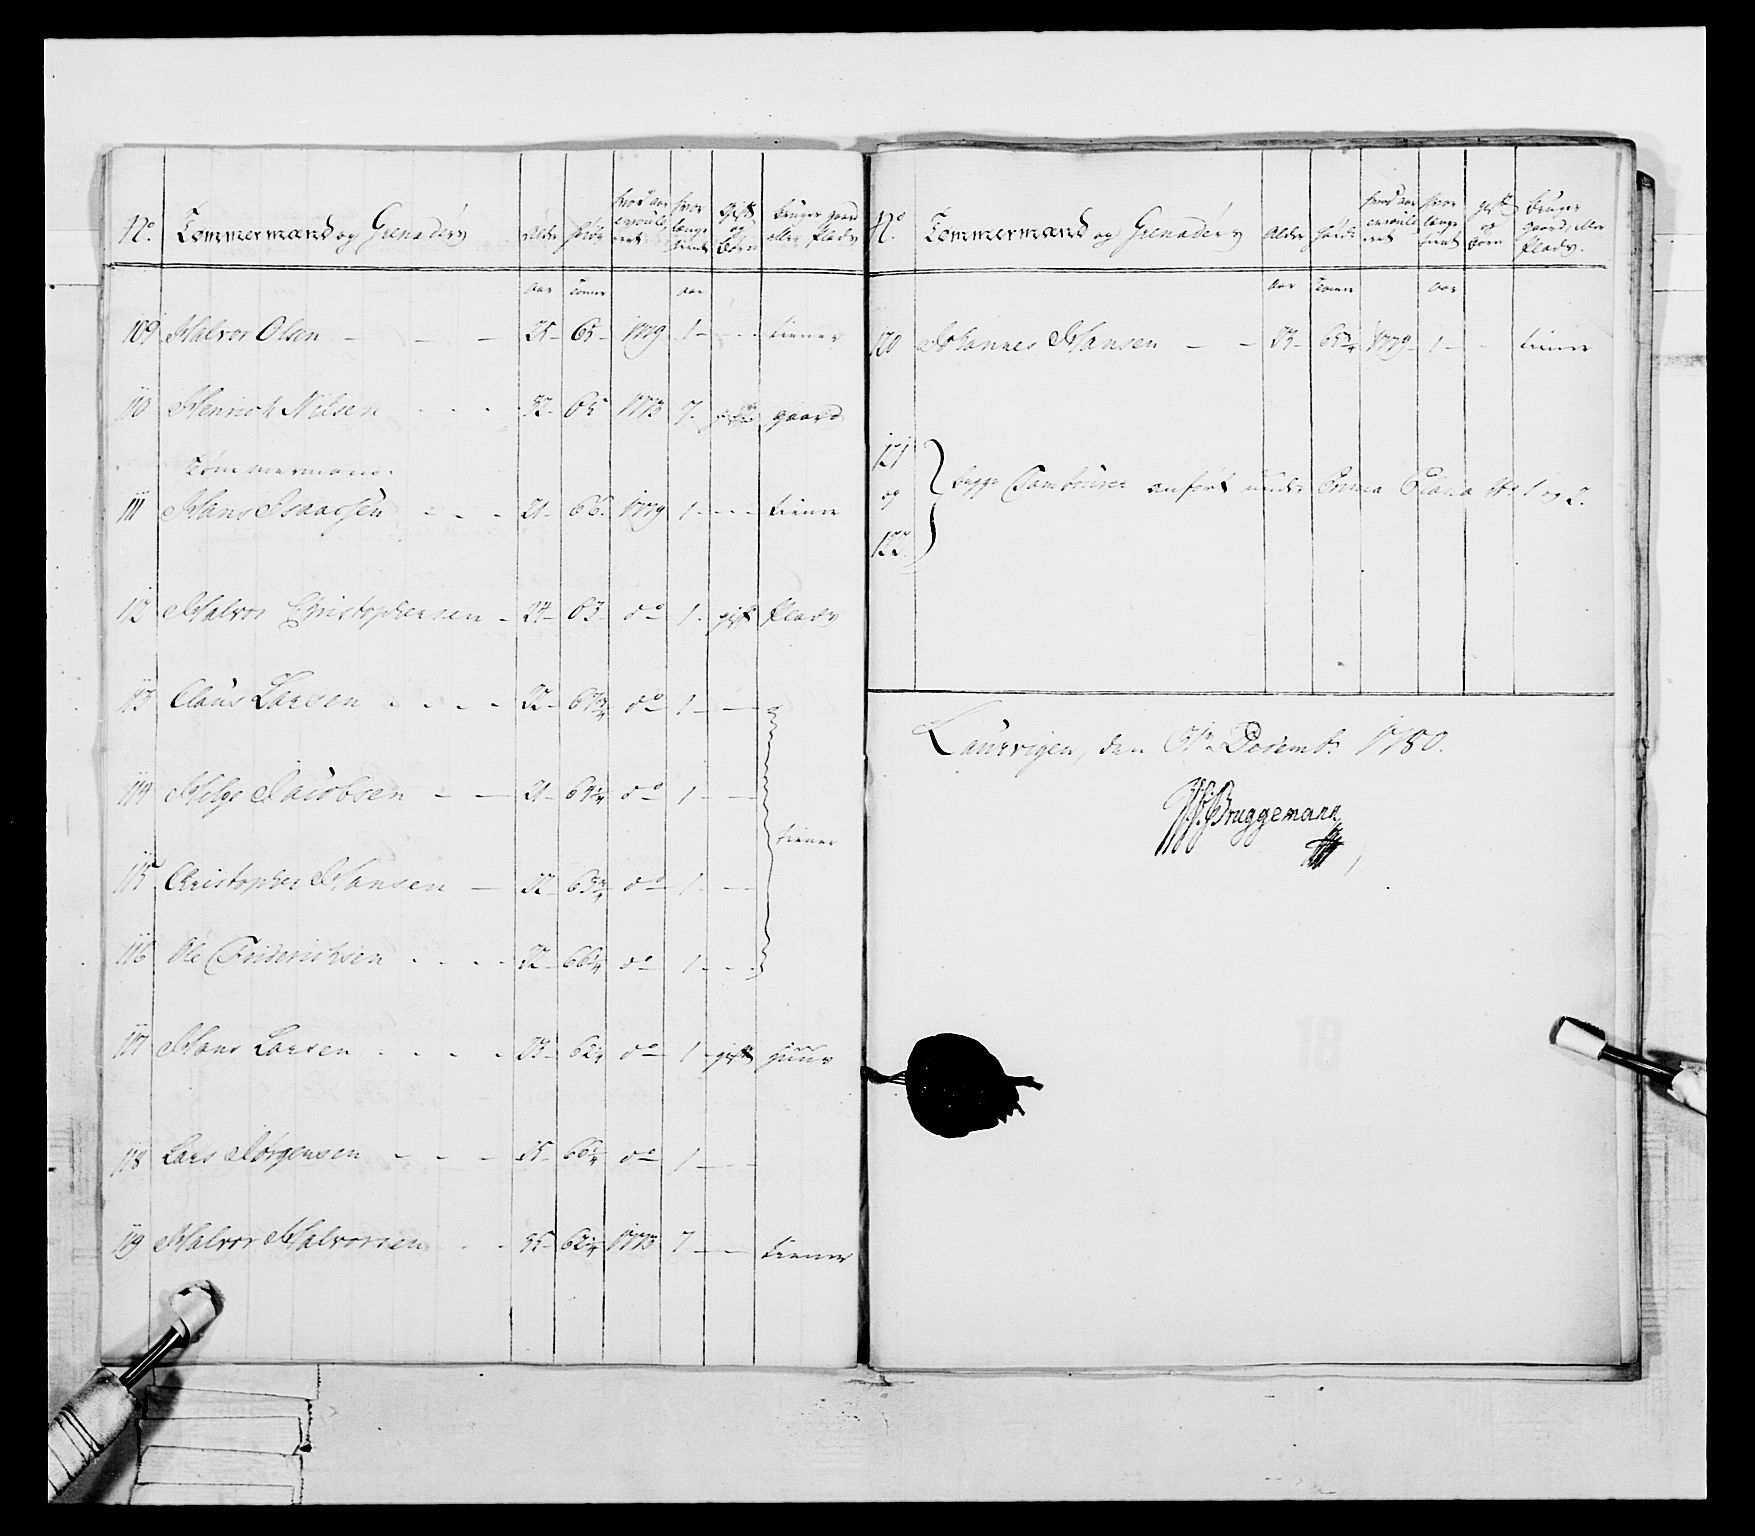 No. Tømmermænd og Grenaders Alder høide hvad aar enroule- ret hvor lenge tient Gift og Børn bruger gaard eller plads
aar tomr aar
109 Halvor Olsen 25 65 1779 1 tiener
110 Henrich Nilsen 32 65 1773 7 gift gaard
Tømmermand
111 Hans Isaacsen 21 66 1779 1 tiener
112 Halvor Christophersen 24 63 do 1 gift plads
113 Claus Larsen 22 do 1
114 Helge Jacobsen 21 64¼ do 1
tiener
115 Christopher Hansen 22 63¾ do 1
116 Ole Friderichsen 22 66¼ do 1
117 Hans Larsen 23 62¼ do 1 gift huus
118 Lars Jørgensen 25 66¼ do 1
119 Halvor Halvorsen 35 62¼ 1773 7 tiener
No. Tømmermænd og Grenaders Alder høide hvad aar enroule- ret hvor lenge tient gift og børn bruger gaard eller plads.
aar tomr aar
120 Johannes Hansen 23 65¾ 1779 1 tiener
121
og begge Tambourer anført under Prima Plana No 1 og 2.
122
Laurvigen, den 31te Decembr 1780.
Bruggemann